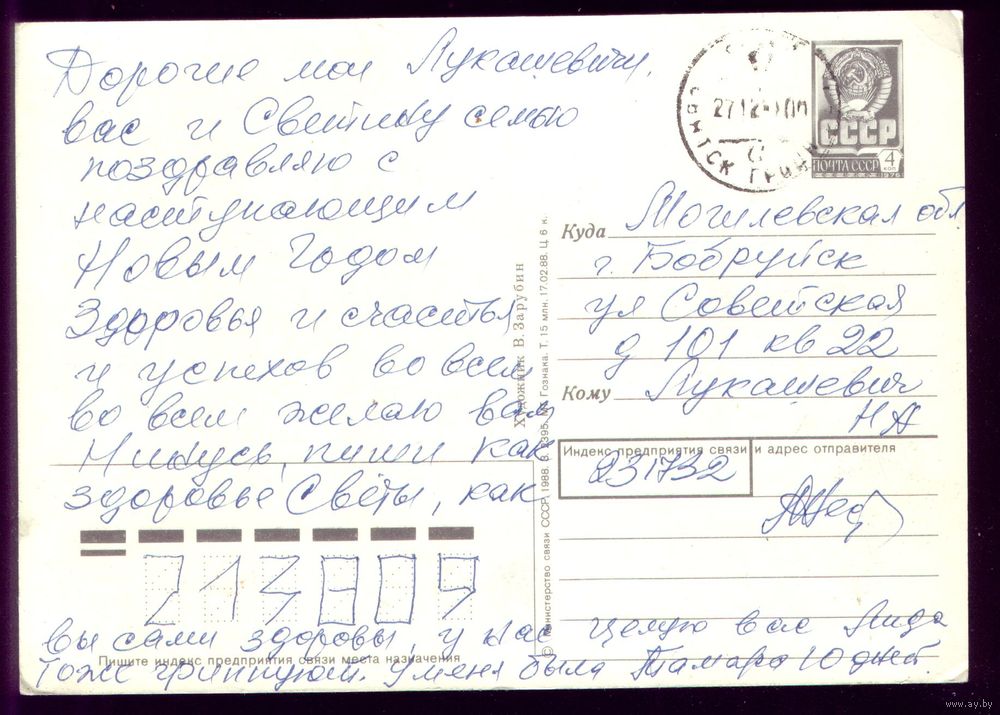 Дорогие мои Лукашевичи,
вас и Светину семью
поздравляю с
наступающим
Новым Годом
Здоровья и счастья
и успехов во всем
во всем желаю вам
Нинусь, пиши как
здоровье Светы, как
вы сами здоровы, у нас целую вас Лида
тоже гриппуют. У меня была Тамара 10 дней.
27 12
СССР
ПОЧТА СССР 4
КОП
1976
Куда Могилевская обл
г. Бобруйск
ул Советская
д 101 кв 22
Кому Лукашевич
Н А
Индекс предприятия связи и адрес отправителя
231732
213809
Пишите индекс предприятия связи места назначения
Художник В. Зарубин
© Министерство связи СССР, 1988. З. 2395. МТ Гознака. Т. 15 млн. 17.02.88. Ц. 6 к.
www.ay.by